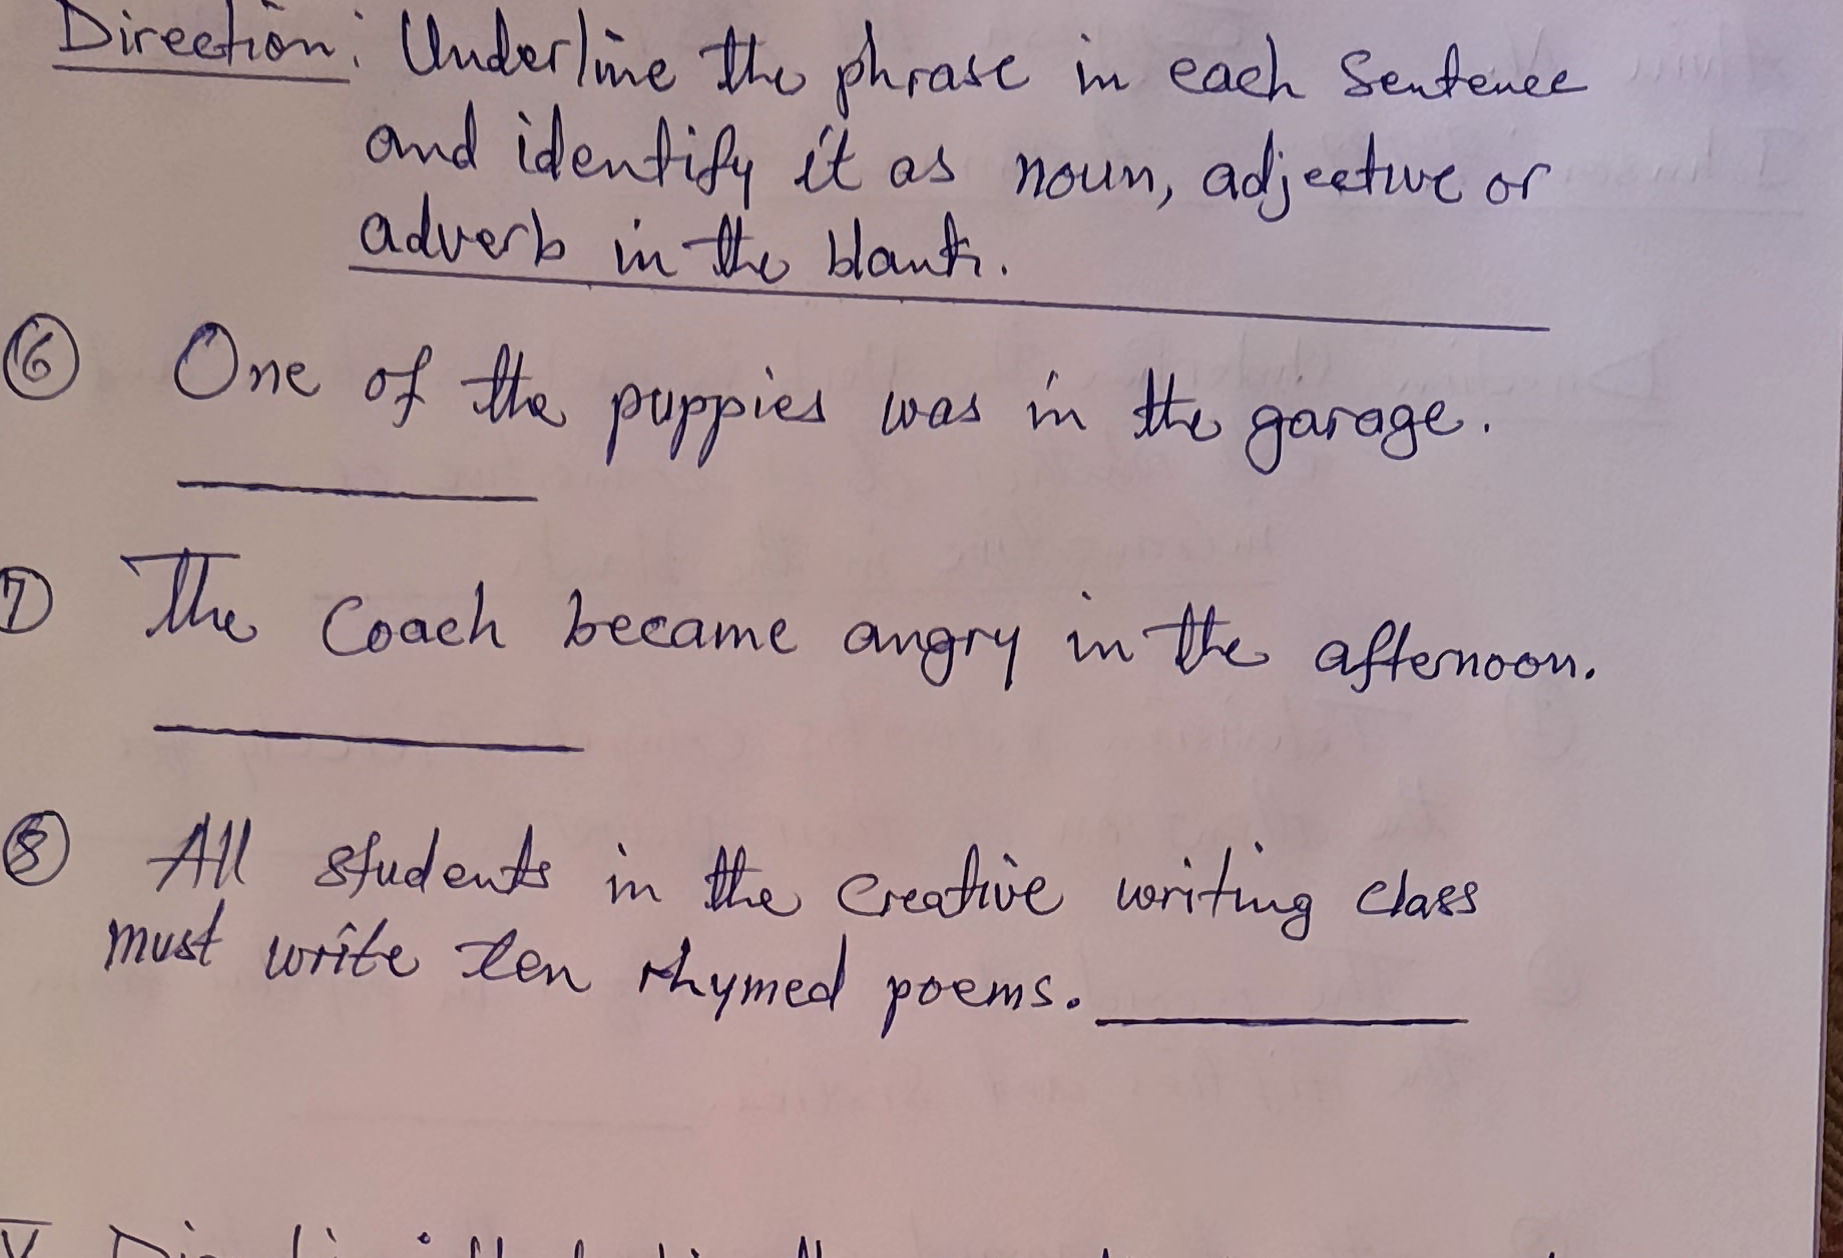 Direction: Underline the phrase in each Sentence
and identify it as noun, adjective or
adverb in the blank.
⑥ One of the puppies was in the garage.
⑦ The Coach became angry in the afternoon.
⑧ All students in the Creative writing class
must write ten rhymed poems.